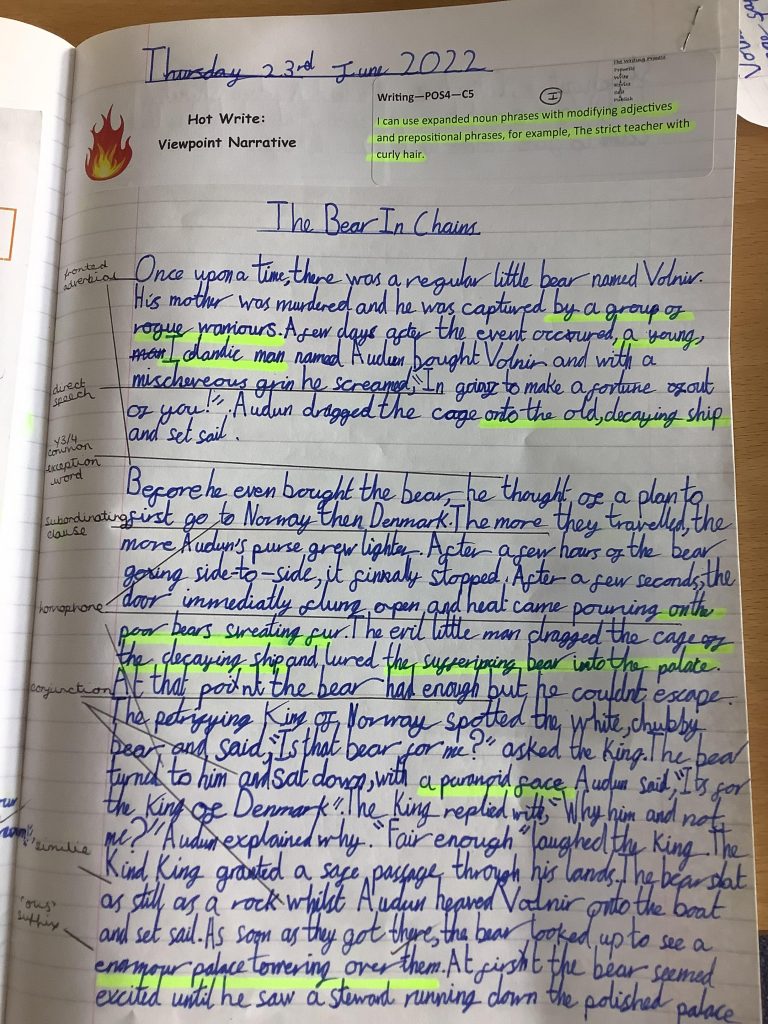 Thursday 23rd June 2022
The Writing Process
Hot Write:
Viewpoint Narrative
Writing—POS4—C5
I can use expanded noun phrases with modifying adjectives
and prepositional phrases, for example, The strict teacher with
curly hair.
The Bear In Chains
fronted
adverbial
Once upon a time, there was a regular little bear named Volnir.
His mother was murdered and he was captured by a group of
rogue warriours. A few days after the event occoured, a young,
Islandic man named Audun bought Volnir and with a
direct
speech
mischereous grin he screamed, "Im going to make a fortune of out
of you!". Audun dragged the cage onto the old, decaying ship
and set sail.
Y3/4
common
exception
word
Before he even bought the bear, he thought of a plan to
subordinating
clause
first go to Norway then Denmark. The more they travelled, the
more Audun's purse grew lighter. After a few hours of the bear
going side-to-side, it finnally stopped. After a few seconds, the
homophone
door immediatly flung open and heat came pouring on the
poor bears sweating fur. The evil little man dragged the cage of
the decaying ship and lured the sufferiping bear into the palace.
conjunction
At that point the bear had enough but he couldnt escape.
The petrifying King of Norway spotted the white, chubby
bear and said, "Is that bear for me?" asked the King. The bear
turned to him and sat down, with a paranoid face Audun said, "Its for
the King of Denmark". The King replied with, "Why him and not
me?" Audun explained why. "Fair enough" laughed the King. The
similie
Kind King granted a safe passage through his lands. The bear sat
as still as a rock whilst Audun heaved Volnir onto the boat
'ous'
suffix
and set sail. As soon as they got there, the bear looked up to see a
enormour palace towering over them. At first the bear seemed
excited until he saw a steward running down the polished palace